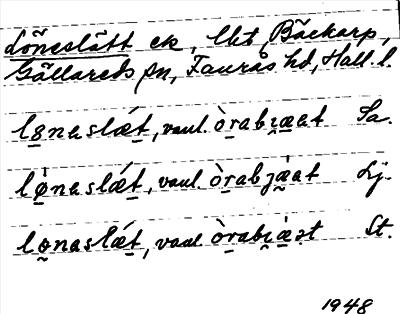 Löneslätt ck, lht Bäckarp,
Gällareds sn, Faurås hd, Hall. l.
lo̱neslǽt̠, vanl. òrabi̯æat Sa.
lø̀neslǽt̠, vanl. òrabjæ̀at Lj.
lo̱naslǽt̠, vanl òrabi̯æ̀ət St.
1948